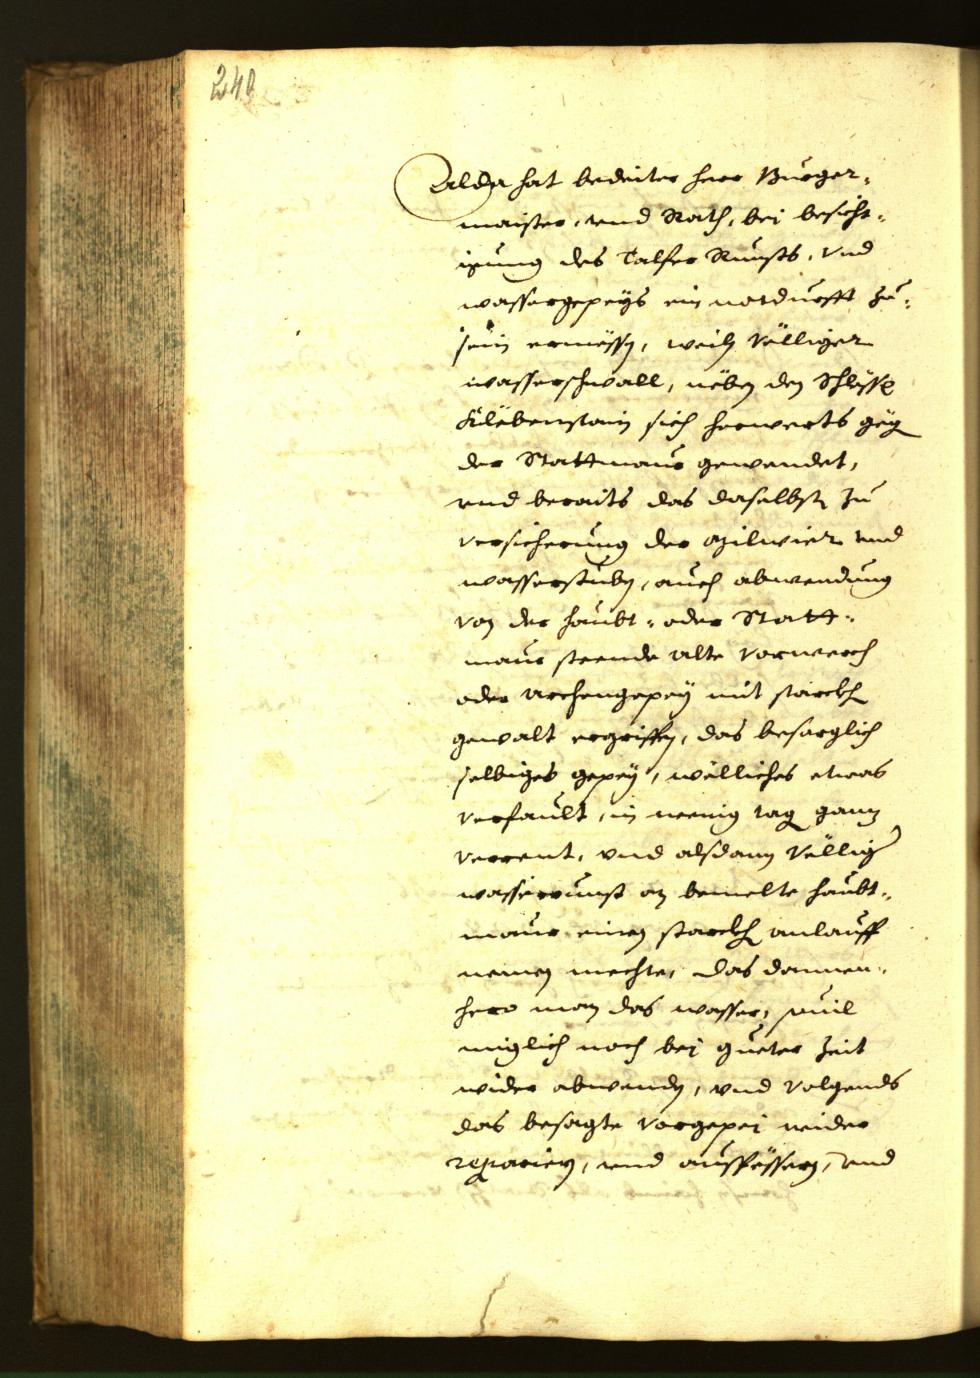 240
Alda hat bedeiter herr Burger-
maister, vnd Rath, bei besich-
igung des Talfer Runsts, vnd
wassergepeys ein notdurfft zu-
sein ermessen, weiln völliger
wasserschwall, neben den Schlossl
Klebenstain sich herwerts gegen
der Stattmaur gewendet,
vnd beraits das daselbst zu
versicherung der vnd
wasserstuben, auch abwendung
von der haubt- oder Statt-
maur steende alte vorwerch
oder archengepey mit starckhen
gewalt ergriffen, das besorglich
selbiges gepey, welliches etwas
verfault, in wenig tag ganz
verrent, vnd alsdann völlig
wasserrunst an bemelte haubt-
maur einen starckhen anlauff
nemen mechte, das dannen-
hero man das wasser, souil
miglich noch bei gueter zeit
wider abwenden, vnd volgends
das besagte vorgepei wider
repariern, vnd ausbessern, vnd